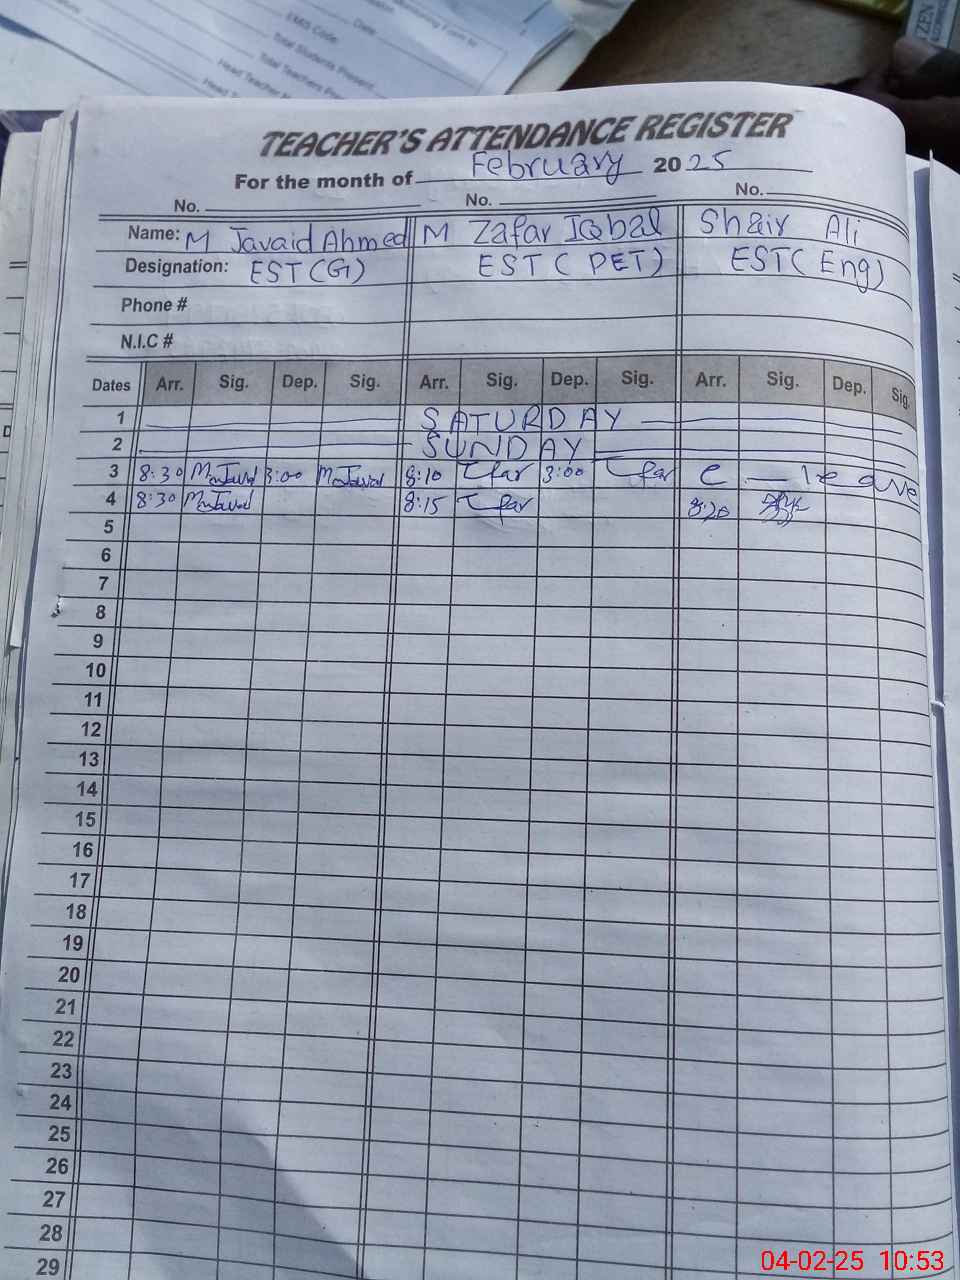 EMIS Code
Date
Total Students Present
Total Teachers
Head Teacher
ZEN
TEACHER'S ATTENDANCE REGISTER
For the month of February 2025
No. No. No.
Name: M Javaid Ahmed M Zafar Iqbal Shair Ali
Designation: EST (G) EST ( PET ) EST ( Eng )
Phone #
N.I.C #
Dates Arr. Sig. Dep. Sig. Arr. Sig. Dep. Sig. Arr. Sig. Dep. Sig.
1 SATURDAY
2 SUNDAY
3 8:30 M Javaid 3:00 M Javaid 8:10 Zfar 3:00 Zfar C — leave
4 8:30 M Javaid 8:15 Zfar 8:20
5
6
7
8
9
10
11
12
13
14
15
16
17
18
19
20
21
22
23
24
25
26
27
28
29
04-02-25 10:53